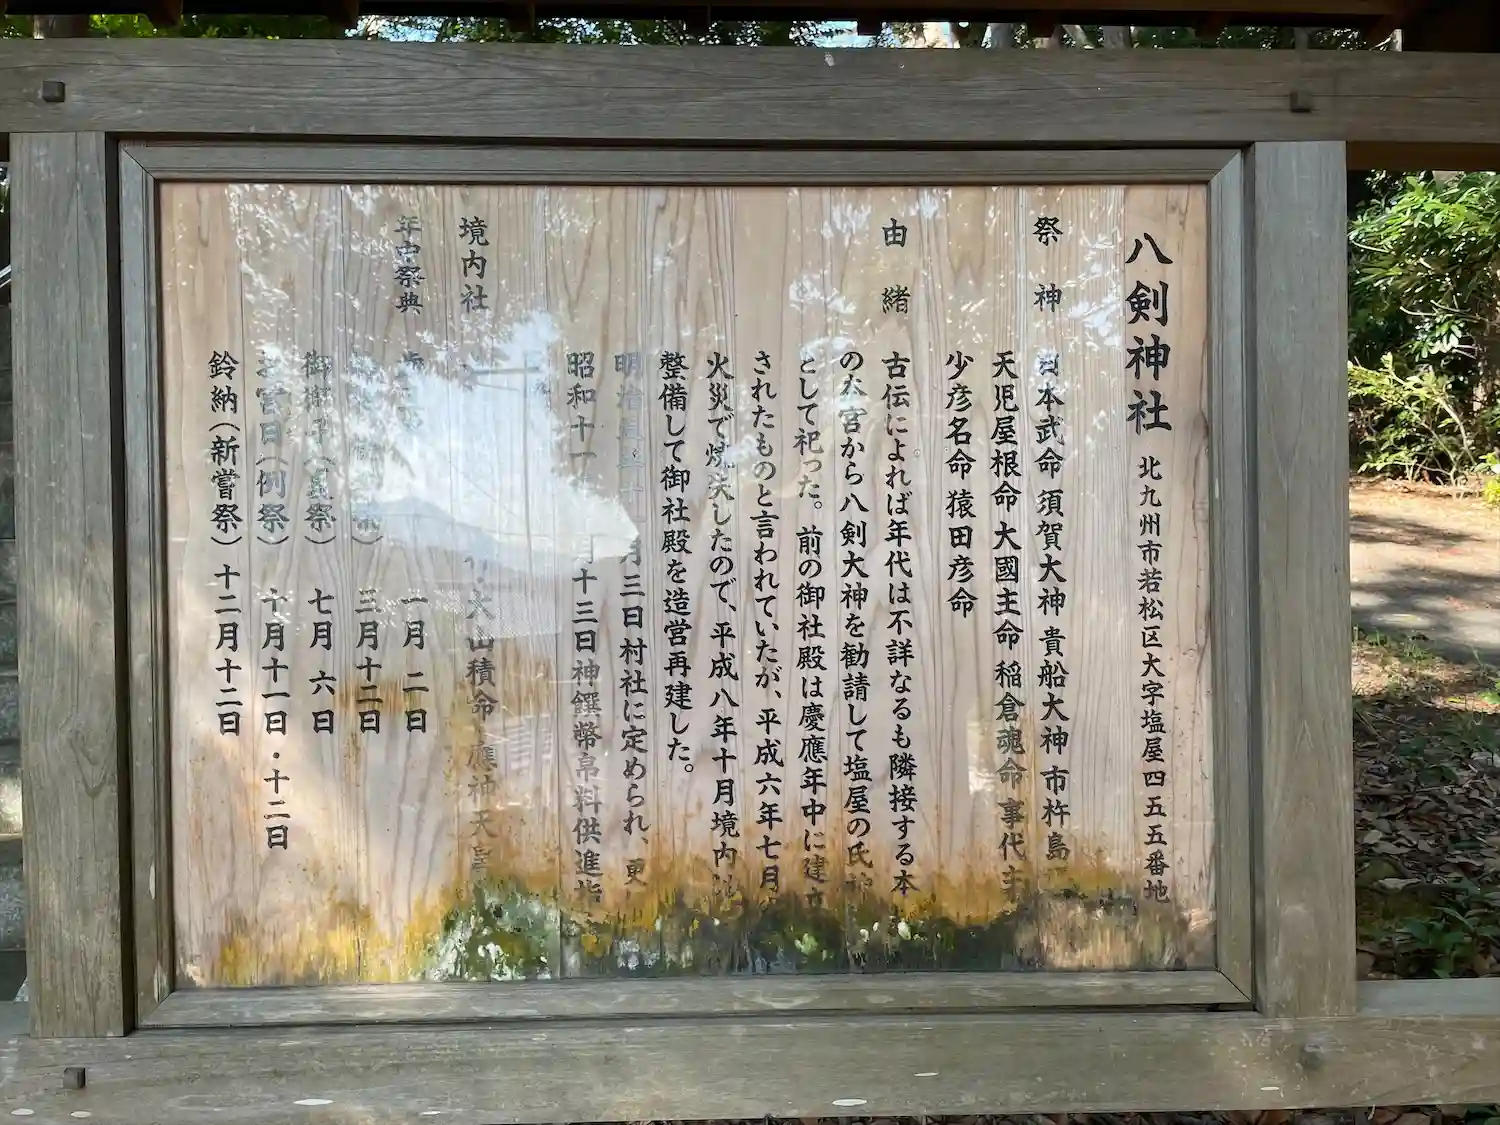 八剣神社 北九州市若松区大字塩屋四五五番地
祭神 日本武命 須賀大神 貴船大神 市杵島
天児屋根命 大國主命 稲倉魂命 事代主
少彦名命 猿田彦命
由緒 古伝によれば年代は不詳なるも隣接する本
の大宮から八剣大神を勧請して塩屋の氏神
として祀った。前の御社殿は慶應年中に建立
されたものと言われていたが、平成六年七月
火災で焼失したので、平成八年十月境内
整備して御社殿を造営再建した。
明治 月三日村社に定められ、更
昭和十一 月十三日神饌幣帛料供進指
境内社 大山積命・應神天皇
年中祭典 一月二日
三月十二日
御獅子(夏祭) 七月六日
お宮日(例祭) 十月十一日・十二日
鈴納(新嘗祭) 十二月十二日